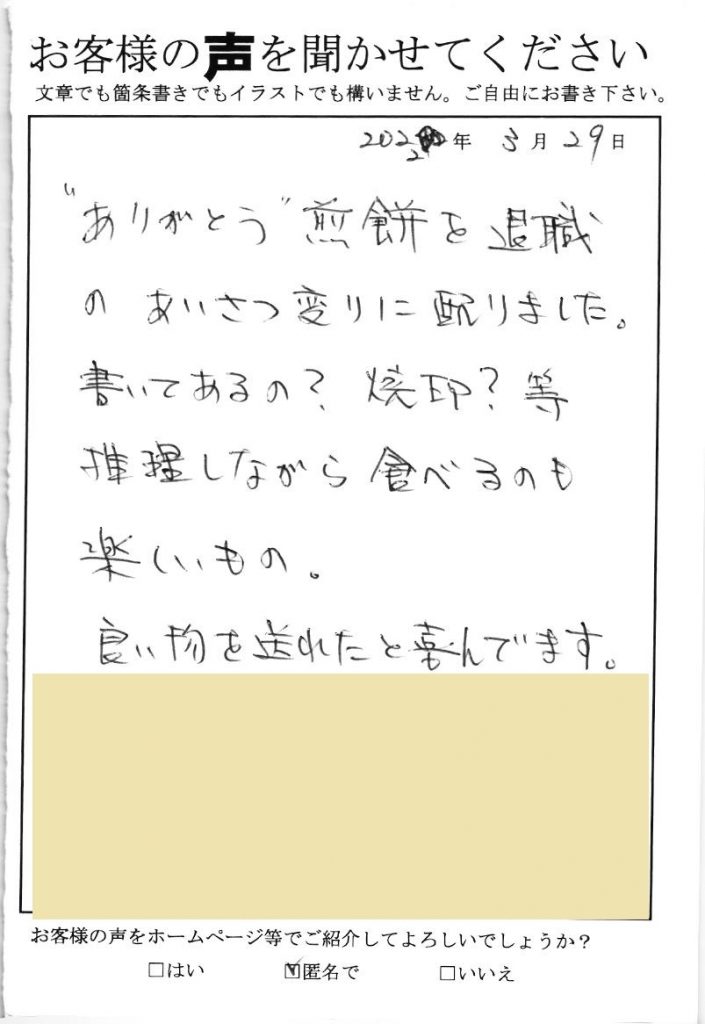 お客様の声を聞かせてください
文章でも箇条書きでもイラストでも構いません。ご自由にお書き下さい。
2022年 3月29日
"ありがとう"煎餅を退職
のあいさつ変りに配りました。
書いてあるの?焼印?等
推理しながら食べるのも
楽しいもの。
良い物を送れたと喜んでます。
お客様の声をホームページ等でご紹介してよろしいでしょうか?
□はい ☑匿名で □いいえ